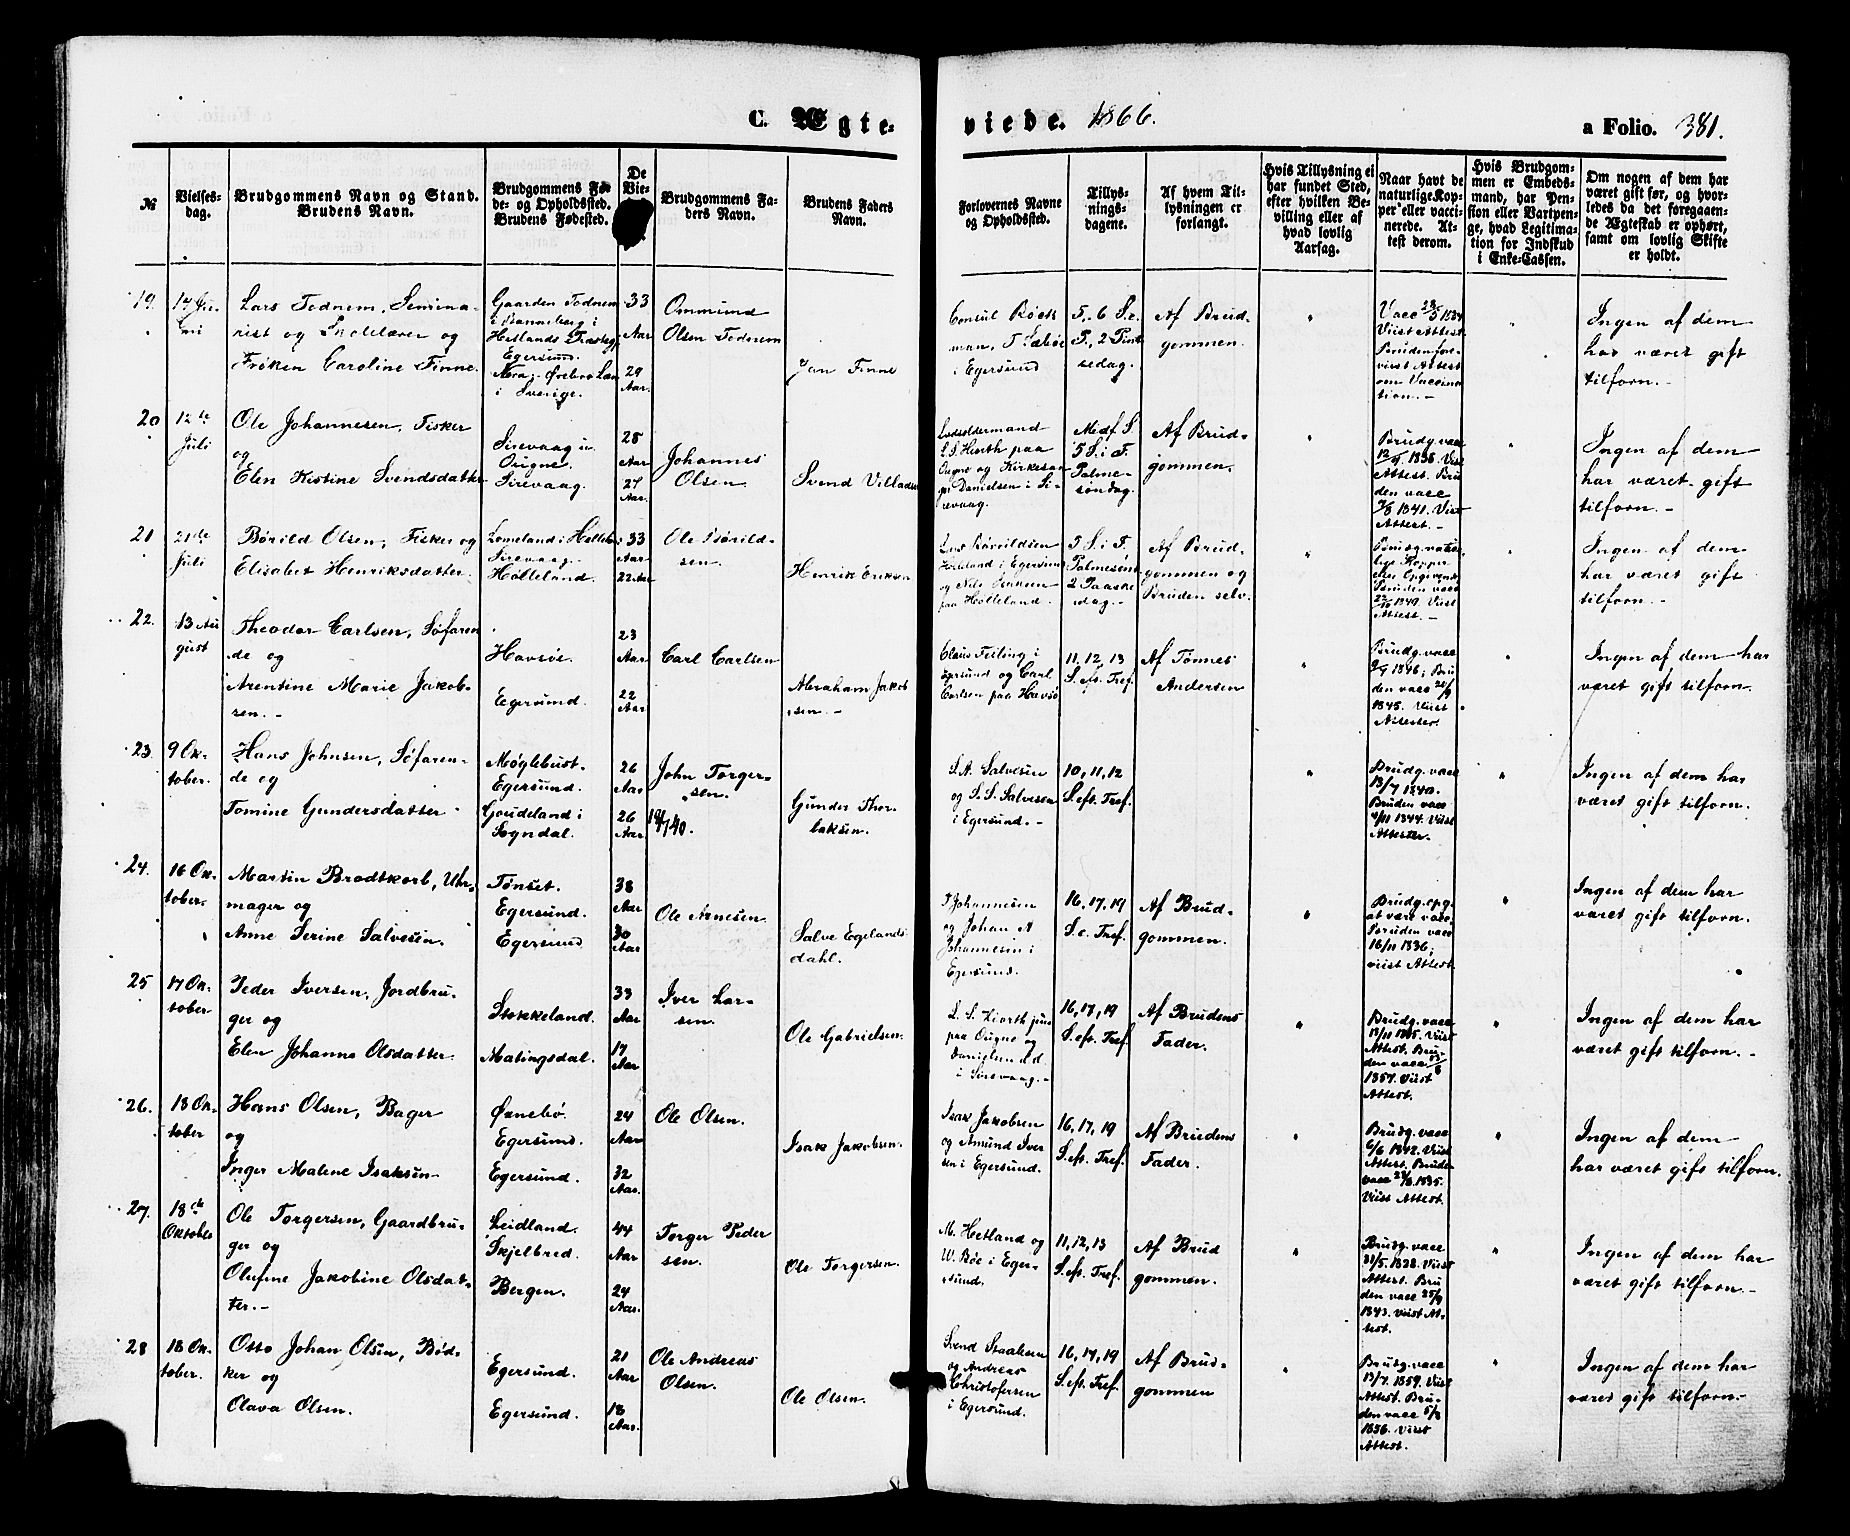 C. Ægte-
viede. 1866.
a Folio. 381.
№
Vielses-
dag.
Brudgommens Navn og Stand.
Brudens Navn.
Brudgommens Fø-
de- og Opholdssted.
Brudens Fødested.
De
Vie-
Brudgommens Fa-
ders Navn.
Brudens Faders
Navn.
Forlovernes Navne
og Opholdssted.
Tillys-
nings-
dagene.
Af hvem Til-
lysningen er
forlangt.
Hvis Tillysning ei
har fundet Sted,
efter hvilken Be-
villing eller af
hvad lovlig
Aarsag.
Naar havt de
naturlige Kop-
per eller vacci-
nerede. At-
test derom.
Hvis Brudgom-
men er Embeds-
mand, har Pen-
sion eller Vartpen-
ge, hvad Legitima-
tion for Indskud
i Enke-Cassen.
Om nogen af dem har
været gift før, og hvor-
ledes da det foregaaen-
de Ægteskab er ophørt,
samt om lovlig Skifte
er holdt.
19.
Lars Tednem, Semina-
rist og Skolelærer og
Frøken Caroline Finne.
Gaarden Tednem
Hetlands
Egersund.
Ørebro Læn
i Sverige.
33
Aar
29
Aar.
Ommund
Olsen Tednem
Jan Finne
Consul
man,
i Egersund
5, 6 S. e.
P., 2 Pint
sedag.
Af Brud-
gommen.
Vacc
Viist Attest.
Bruden fore-
viist Attest
om Vaccina
tion.-
Ingen af dem
har været gift
tilforn.-
20
12te
Juli
Ole Johannesen, Fisker
og
Elen Kistine Svendsdatter
Sirevaag i
Ougne.
Sirevaag.
28
Aar
27
Aar.
Johannes
Olsen
Svend Villadsen
Lodsoldermand
L. S. Hiorth paa
Ougne og Kirkesan
ger Danielsen i Si-
revaag.
Medf. S.
5 S. i F.
Palme-
søndag.
Af Brud-
gommen.
Brudg. vacc
1838. Viist
Attest. Bru
den vacc
7/8 1841. Viist
Attest.-
Ingen af dem
har været gift
tilforn.-
21
21de
Juli
Børild Olsen, Fisker og
Elisabet Henriksdatter.
Lomeland i
Sirevaag.
Hølleland.
33
Aar
22 Aar
Ole Børild-
sen.
Henrik Eriksen
i Egersund
og Nils
paa Hølleland.
5 S. i F.
Palmesønd
2 Paaske
dag.-
Af Brud-
gommen og
Bruden selv.
Brudg. natur-
lige Kopper
efter Opgivende
Bruden vacc
1840. Viist
Attest.-
Ingen af dem-
har været gift
tilforn.-
22.
13 Au
gust
Theodor Carlsen, Søfaren
de og
Arentine Marie Jakob-
sen.-
Havsøe.
Egersund.
23
Aar
22
Aar
Carl Carlsen
Abraham Jakob
sen.-
Claus Feiling i
Egersund og Carl
Carlsen paa Havsø
11, 12, 13
S. eft. Tref.
Af Tønnes
Andersen
Brudg. vacc
1846; Bru
den vacc
1845. Viist
Attester.
Ingen af dem har
været gift tilforn.
23
9 Ok-
tober.
Hans Johnsen, Søfaren-
de og
Tomine Gundersdatter
Møglebust.
Egersund.
Goudeland i
Sogndal.
26
Aar
26
Aar
John Torger-
sen.
Gunder Thor
laksen.
S. A. Salvesen
og S. S. Salvesen
i Egersund.-
10, 11, 12
S. eft. Tref.
Brudg. vacc
13/7 1840.
Bruden vacc
4/11 1844. Viist
Attester.
Ingen af dem har
været gift tilforn.
24.
16 Ok-
tober.
Martin Brodtkorb, Uhr-
mager og
Anne Serine Salvesen.
Tønset.
Egersund.
Egersund
38
Aar
30
Aar
Ole Arnesen.
Salve Egelands
dahl.
Johannesen
og Johan A
Johannesen i
Egersund.
16, 17, 19
S. e. Tref.
Af Brud-
gommen.
Brudg. opg.
at være vacc.
Bruden vacc
16/11 1836;
viist Attest.
Ingen af dem har
været gift tilforn.
25
17 Ok-
tober
Peder Iversen, Jordbru-
ger og
Elen Johanne Olsdatter.
Stokkeland.
Matingsdal.
33
Aar
17
Aar
Iver Lar-
sen.
Ole Gabrielsen.
L. S. Hiorth jun
paa Ougne og
Danielsen
i Sirevaag.-
16, 17, 19
S. eft. Tref.
Af Brudens
Fader.
Brudg. vacc
Viist
Attest. Bru-
den vacc
1857. Viist
Attest.
Ingen af dem har
været gift tilforn.-
26.
18 Ok-
tober
Hans Olsen, Bager
og
Inger Malene Isaksen
Øxnebø.
Egersund.
Egersund.
24
Aar
32
Aar.
Ole Olsen.
Isak Jakobsen.
Isak Jakobsen
og Amund Iver
sen i Egersund.
16, 17, 19
S. eft. Tref.
Af Brudens
Fader.
Brudg. vacc
6/6 1842. Viist
Attest. Bruden
vacc 1835.
Viist Attest.
Ingen af dem-
har været gift tilforn.
27.
18de
Oktober
Ole Torgersen, Gaardbru-
ger og
Olufine Jakobine Olsdat-
ter.-
Leidland.
Skjelbred.
Bergen.
44
Aar
24
Aar.
Torger Peder
sen.
Ole Torgersen.
M. Hetland og
W. Bøe i Eger-
sund.
11, 12, 13
S. eft. Tref.
Af Brud
gommen.
Brudg. vacc
31/5 1828. Viist
Attest. Bru
den vacc 25/9
1843. Viist At-
test.
Ingen af dem har
været gift tilforn.-
28
18 Ok-
tober.
Otto Johan Olsen, Bød-
ker og
Olava Olsen.
Egersund.
Egersund.
21
Aar
18
Aar.
Ole Andreas
Olsen.
Ole Olsen.
Svend Staalesen
og Andreas
Christofersen
i Egersund.
16, 17, 19
S. eft. Tref.
Af Brud-
gommen
Brudg. vacc
13/7 1859. Viist
Attest. Bru-
den vacc 5/8
1856. Viist
Attest.
Ingen af dem har
været gift tilforn.-